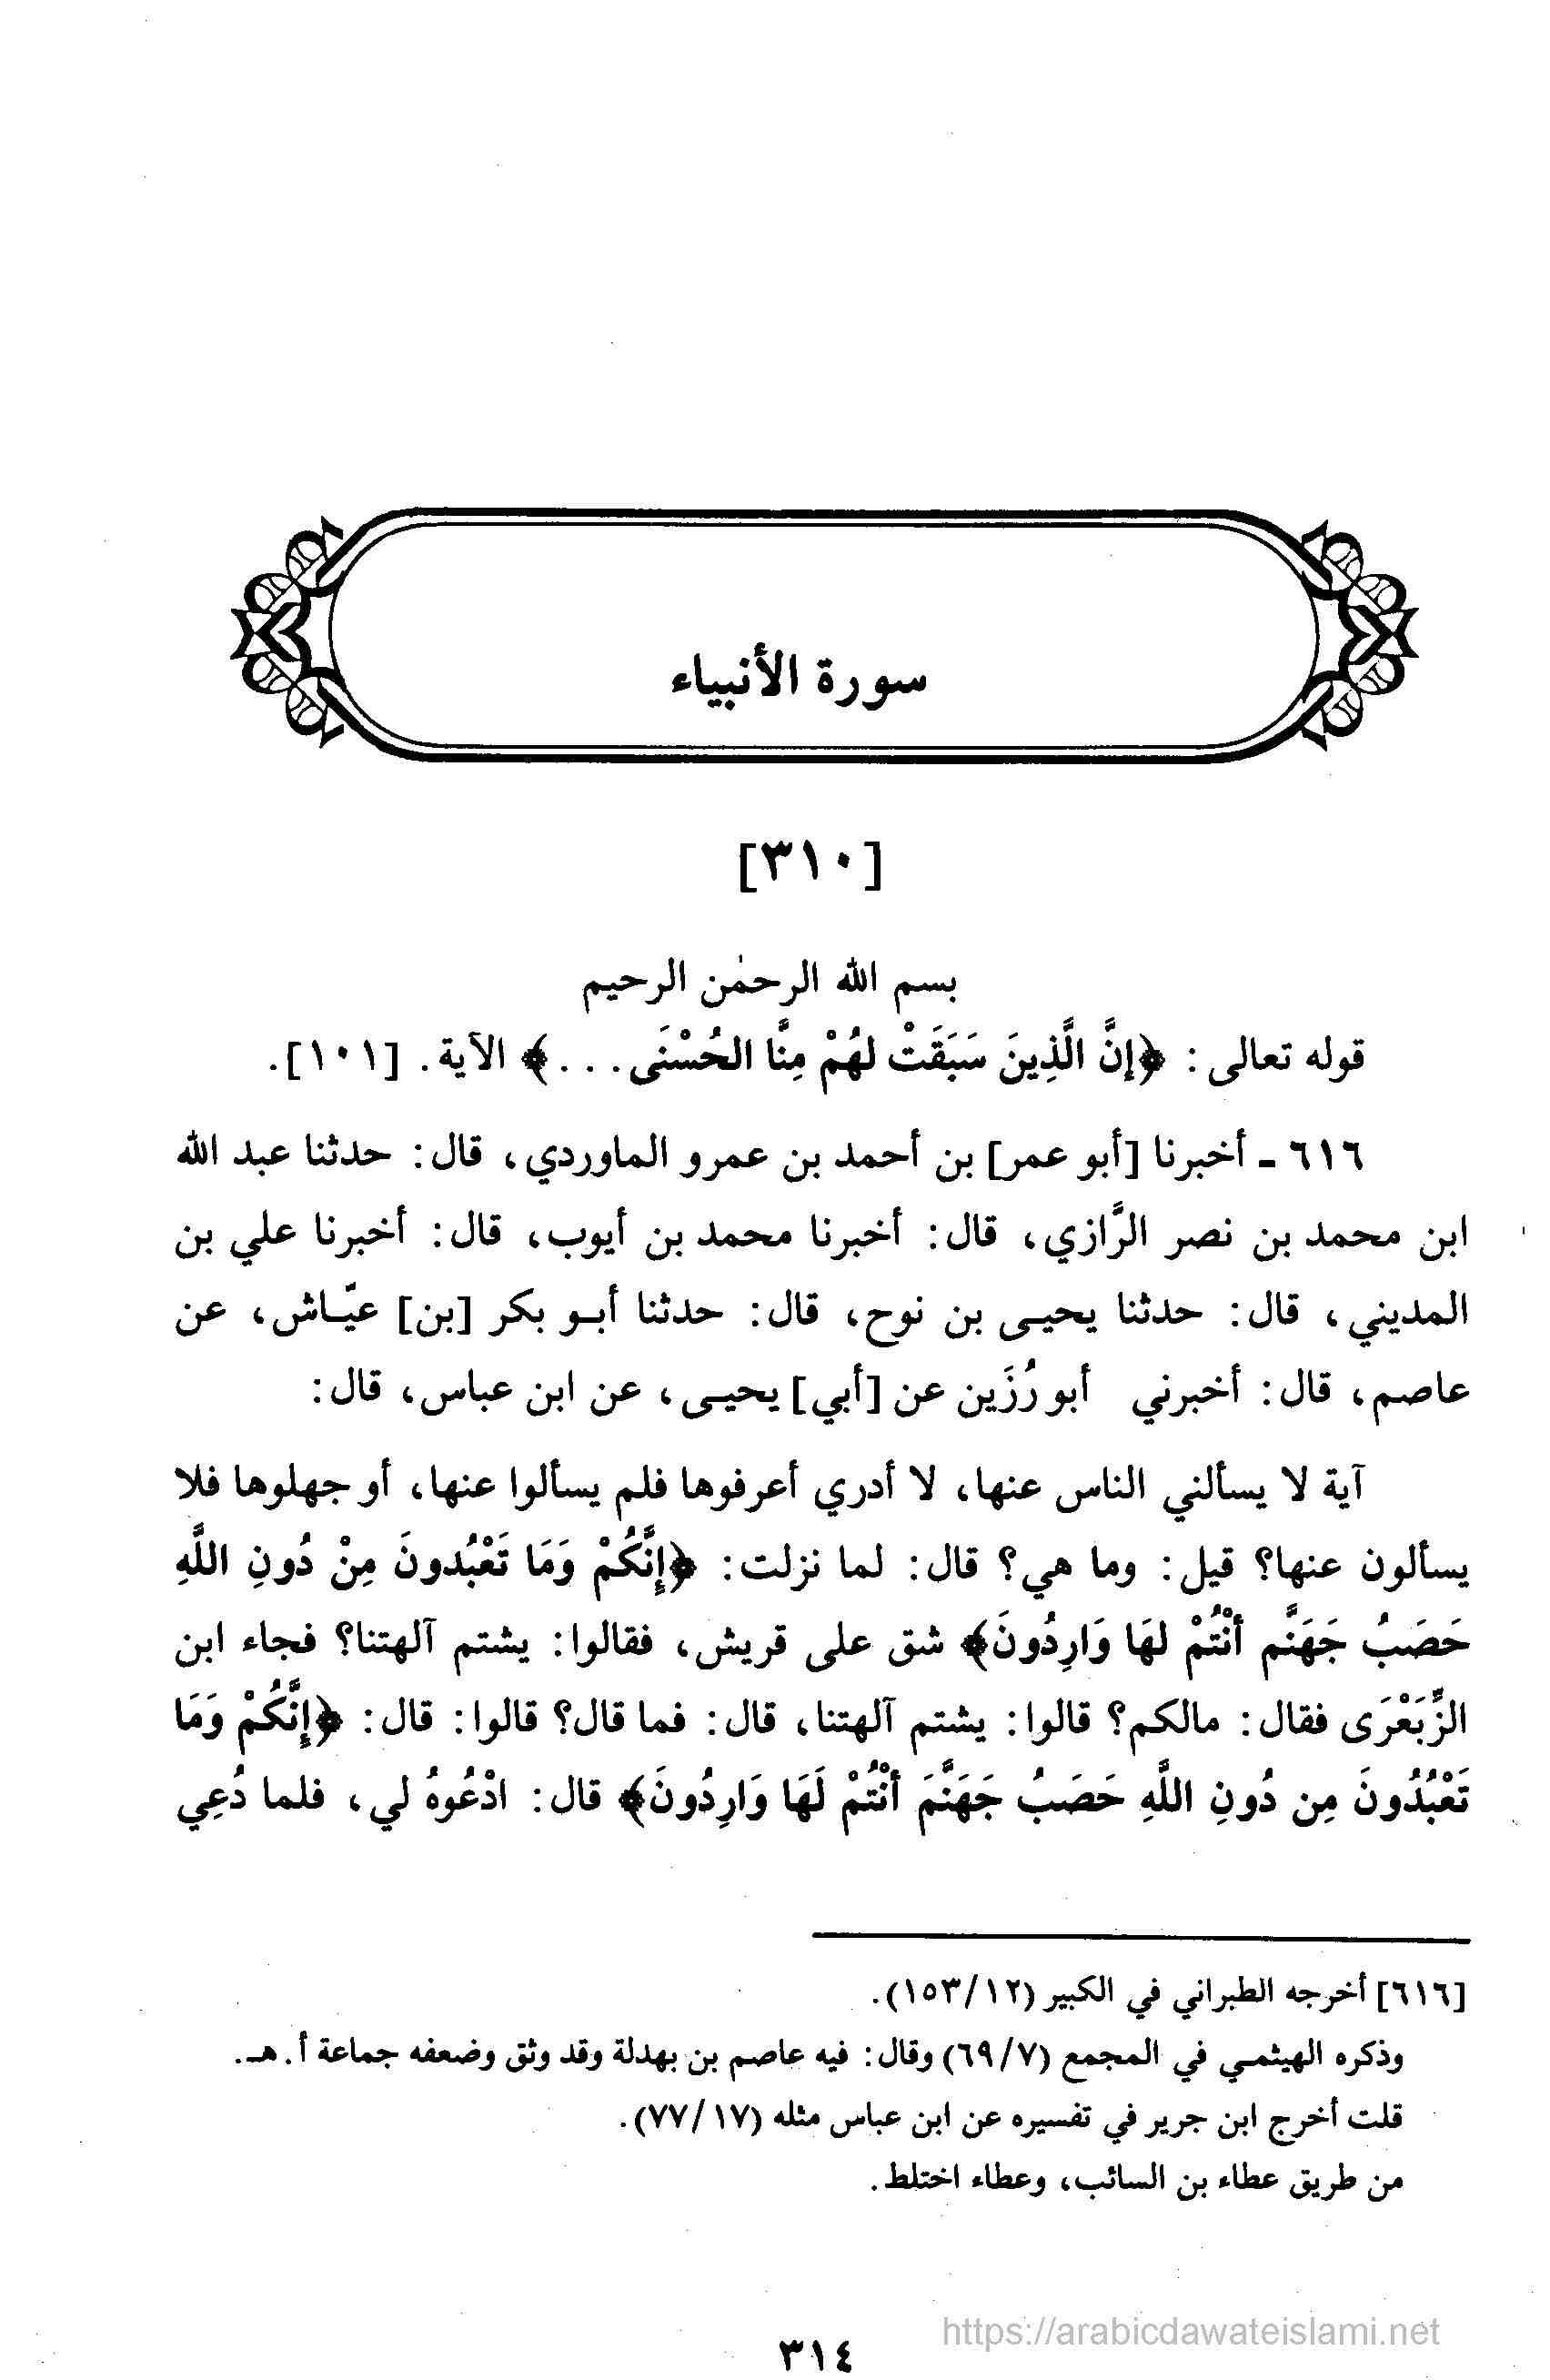 سورة الأنبياء
[٣١٠]
بسم الله الرحمٰن الرحيم
قوله تعالى: ﴿إنَّ الَّذِينَ سَبَقَتْ لهُمْ مِنَّا الحُسْنَى. . .﴾ الآية. [١٠١].
٦١٦ ـ أخبرنا [أبو عمر] بن أحمد بن عمرو الماوردي، قال: حدثنا عبد الله
ابن محمد بن نصر الرَّازي، قال: أخبرنا محمد بن أيوب، قال: أخبرنا علي بن
المديني، قال: حدثنا يحيى بن نوح، قال: حدثنا أبو بكر [بن] عيّاش، عن
عاصم، قال: أخبرني أبو رُزَين عن [أبي] يحيى، عن ابن عباس، قال:
آية لا يسألني الناس عنها، لا أدري أعرفوها فلم يسألوا عنها، أو جهلوها فلا
يسألون عنها؟ قيل: وما هي؟ قال: لما نزلت: ﴿إنَّكُمْ وَمَا تَعْبُدونَ مِنْ دُونِ اللَّهِ
حَصَبُ جَهَنَّم أنْتُمْ لهَا وَارِدُونَ﴾ شق على قريش، فقالوا: يشتم آلهتنا؟ فجاء ابن
الزِّبَعْرَى فقال: مالكم؟ قالوا: يشتم آلهتنا، قال: فما قال؟ قالوا: قال: ﴿إنَّكُمْ وَمَا
تَعْبُدُونَ مِن دُونِ اللَّهِ حَصَبُ جَهَنَّمَ أنْتُمْ لَهَا وَارِدُونَ﴾ قال: ادْعُوهُ لي، فلما دُعِي
[٦١٦] أخرجه الطبراني في الكبير (١٥٣/١٢).
وذكره الهيثمي في المجمع (٦٩/٧) وقال: فيه عاصم بن بهدلة وقد وثق وضعفه جماعة أ. هـ.
قلت أخرج ابن جرير في تفسيره عن ابن عباس مثله (٧٧/١٧).
من طريق عطاء بن السائب، وعطاء اختلط.
https://arabicdawateislami.net
٣١٤